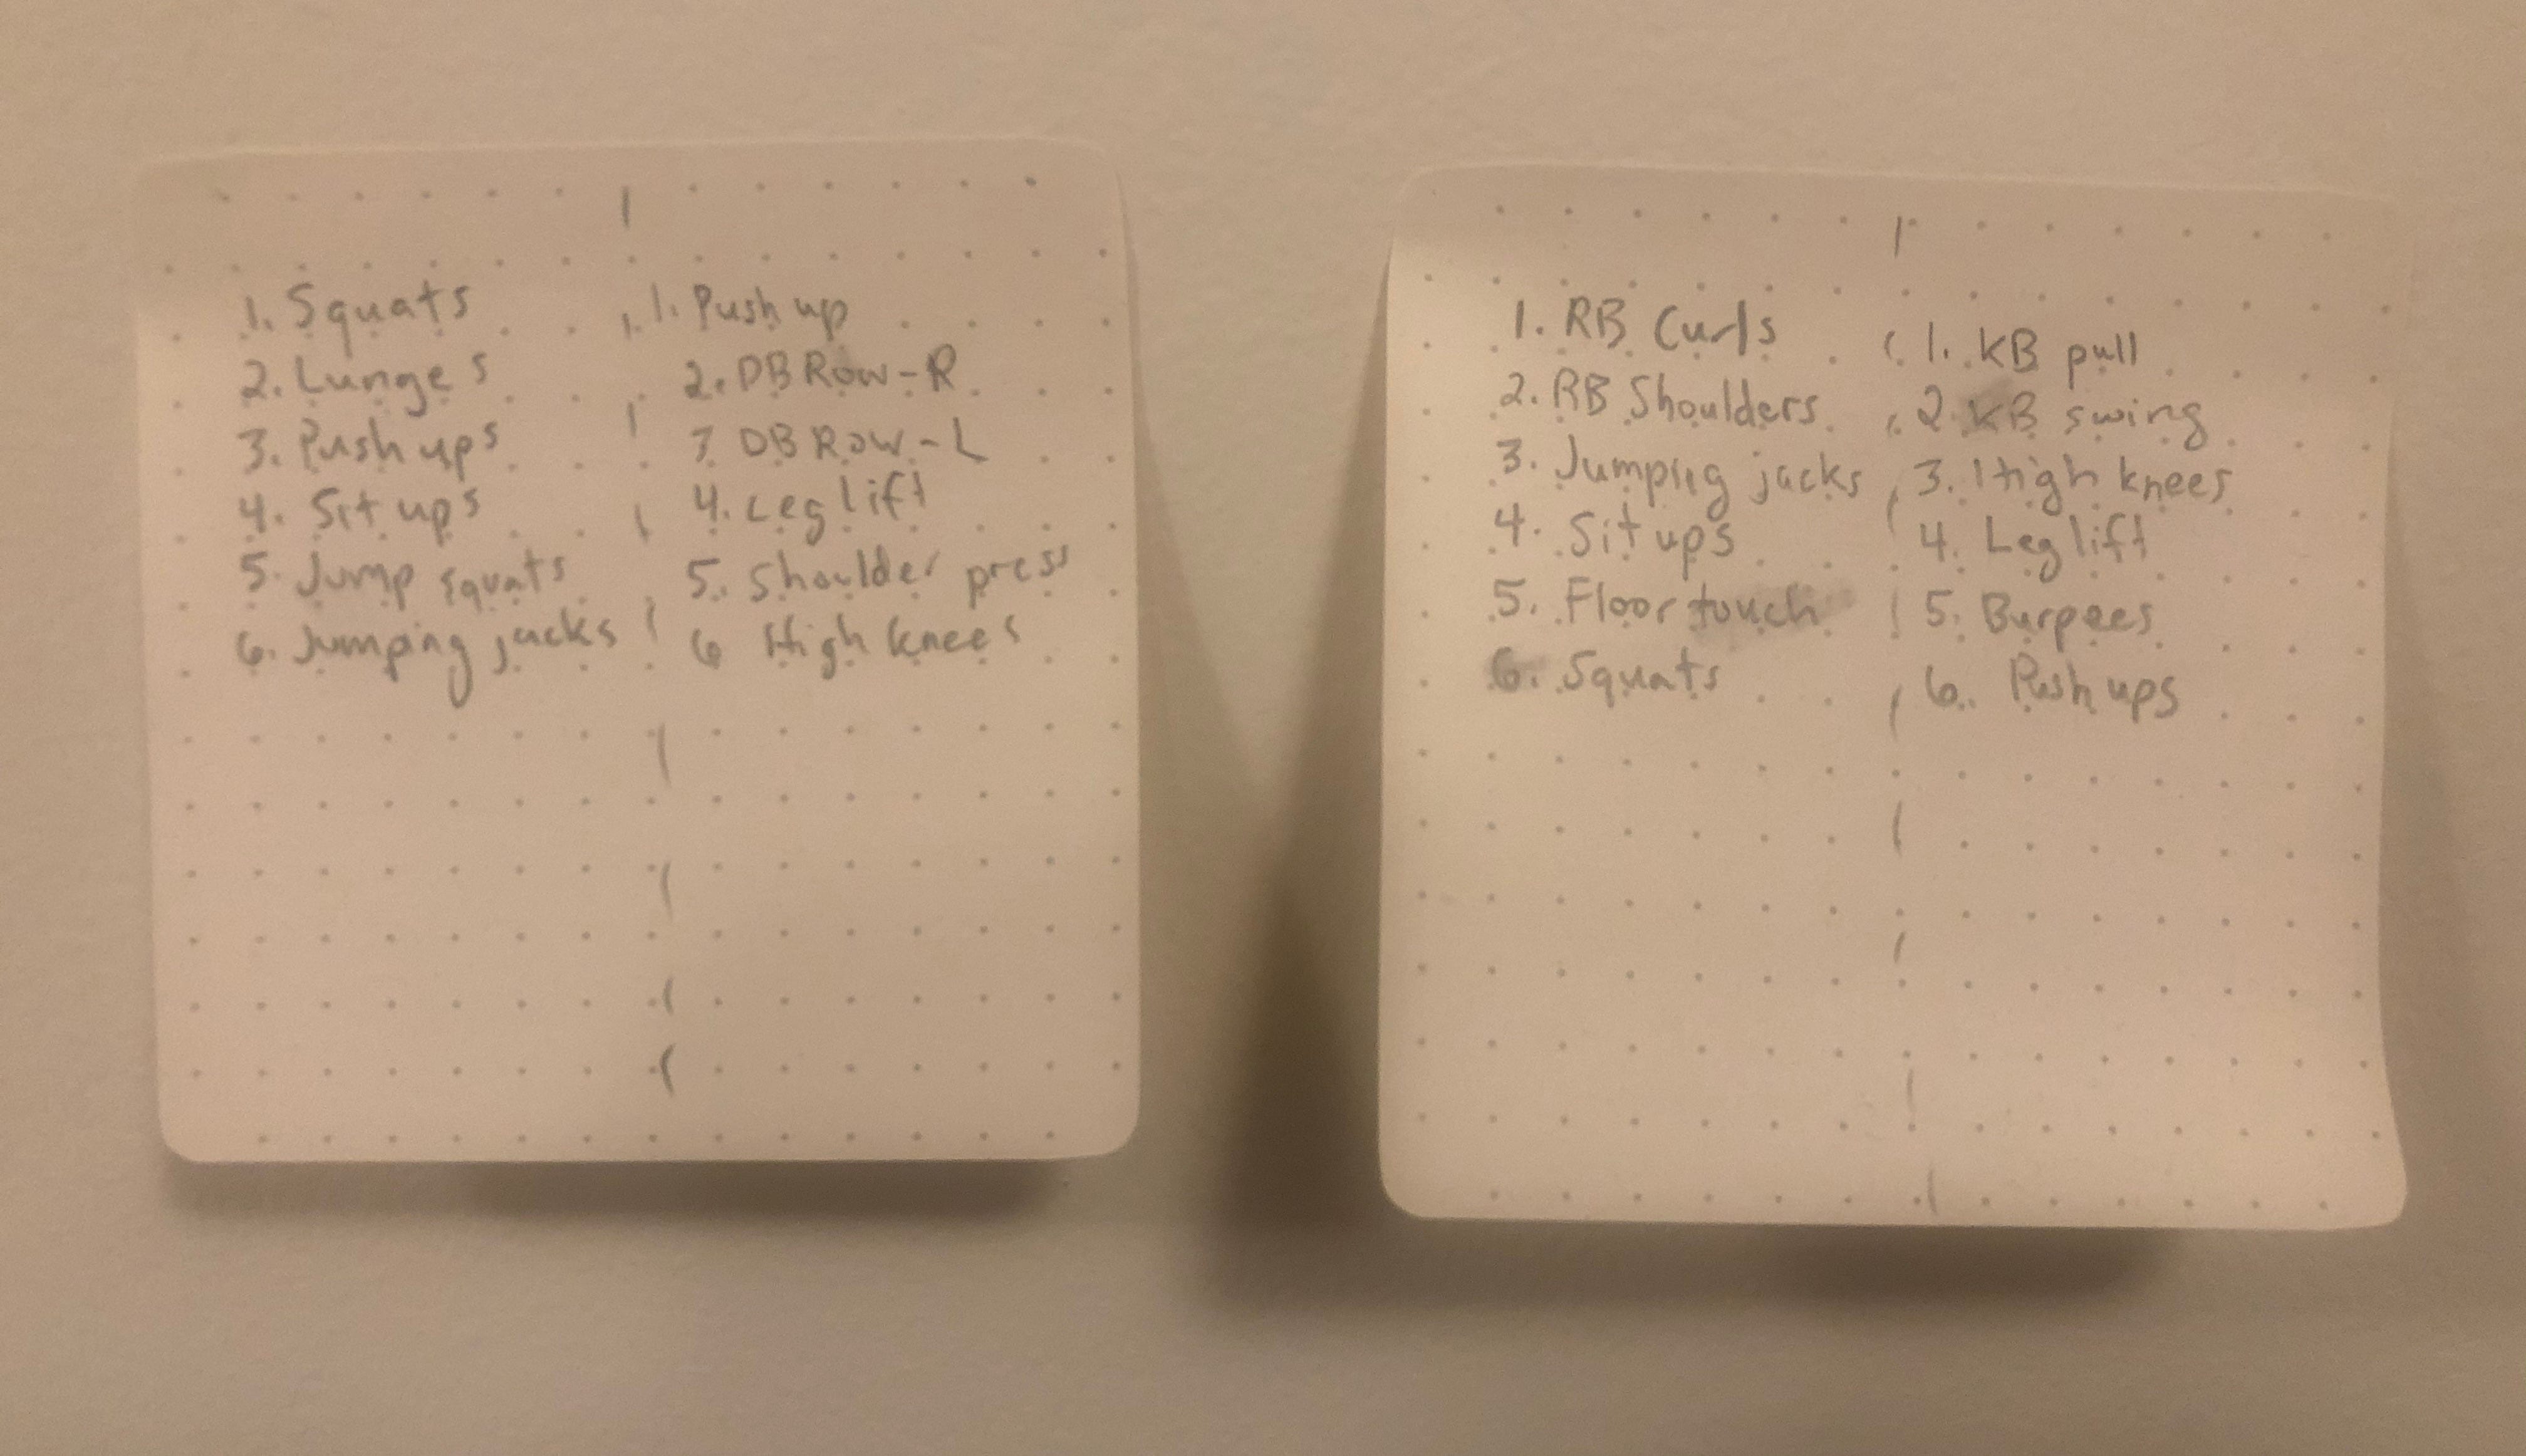 1. Squats
2. Lunges
3. Push ups
4. Sit ups
5. Jump squats
6. Jumping jacks
1. Push up
2. DB Row-R
3. DB Row-L
4. Leg lift
5. Shoulder press
6 High knees
1. RB Curls
2. RB Shoulders
3. Jumping jacks
4. Sit ups
5. Floor touch
6. Squats
1. KB pull
2. KB swing
3. High knees
4. Leg lift
5. Burpees
6. Push ups